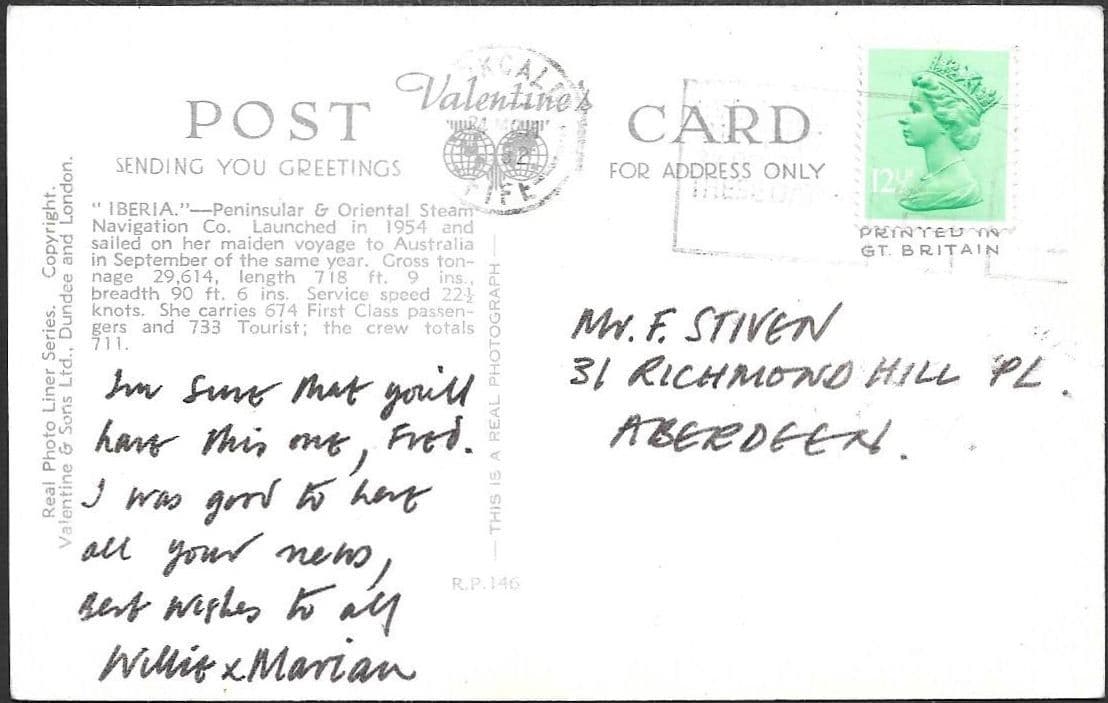 POST CARD
Valentine's
SENDING YOU GREETINGS
FOR ADDRESS ONLY
KCAL
FIFE
12½P
PRINTED IN
GT. BRITAIN
" IBERIA."—Peninsular & Oriental Steam
Navigation Co. Launched in 1954 and
sailed on her maiden voyage to Australia
in September of the same year. Gross ton-
nage 29,614, length 718 ft. 9 ins.,
breadth 90 ft. 6 ins. Service speed 22½
knots. She carries 674 First Class passen-
gers and 733 Tourist; the crew totals
711.
Real Photo Liner Series. Copyright.
Valentine & Sons Ltd., Dundee and London.
— THIS IS A REAL PHOTOGRAPH —
R.P.146
Im sure that you'll
have this one, Fred.
I was good to have
all your news,
Best wishes to all
Willie & Marian
Mr. F. STIVEN
31 RICHMOND HILL PL.
ABERDEEN.